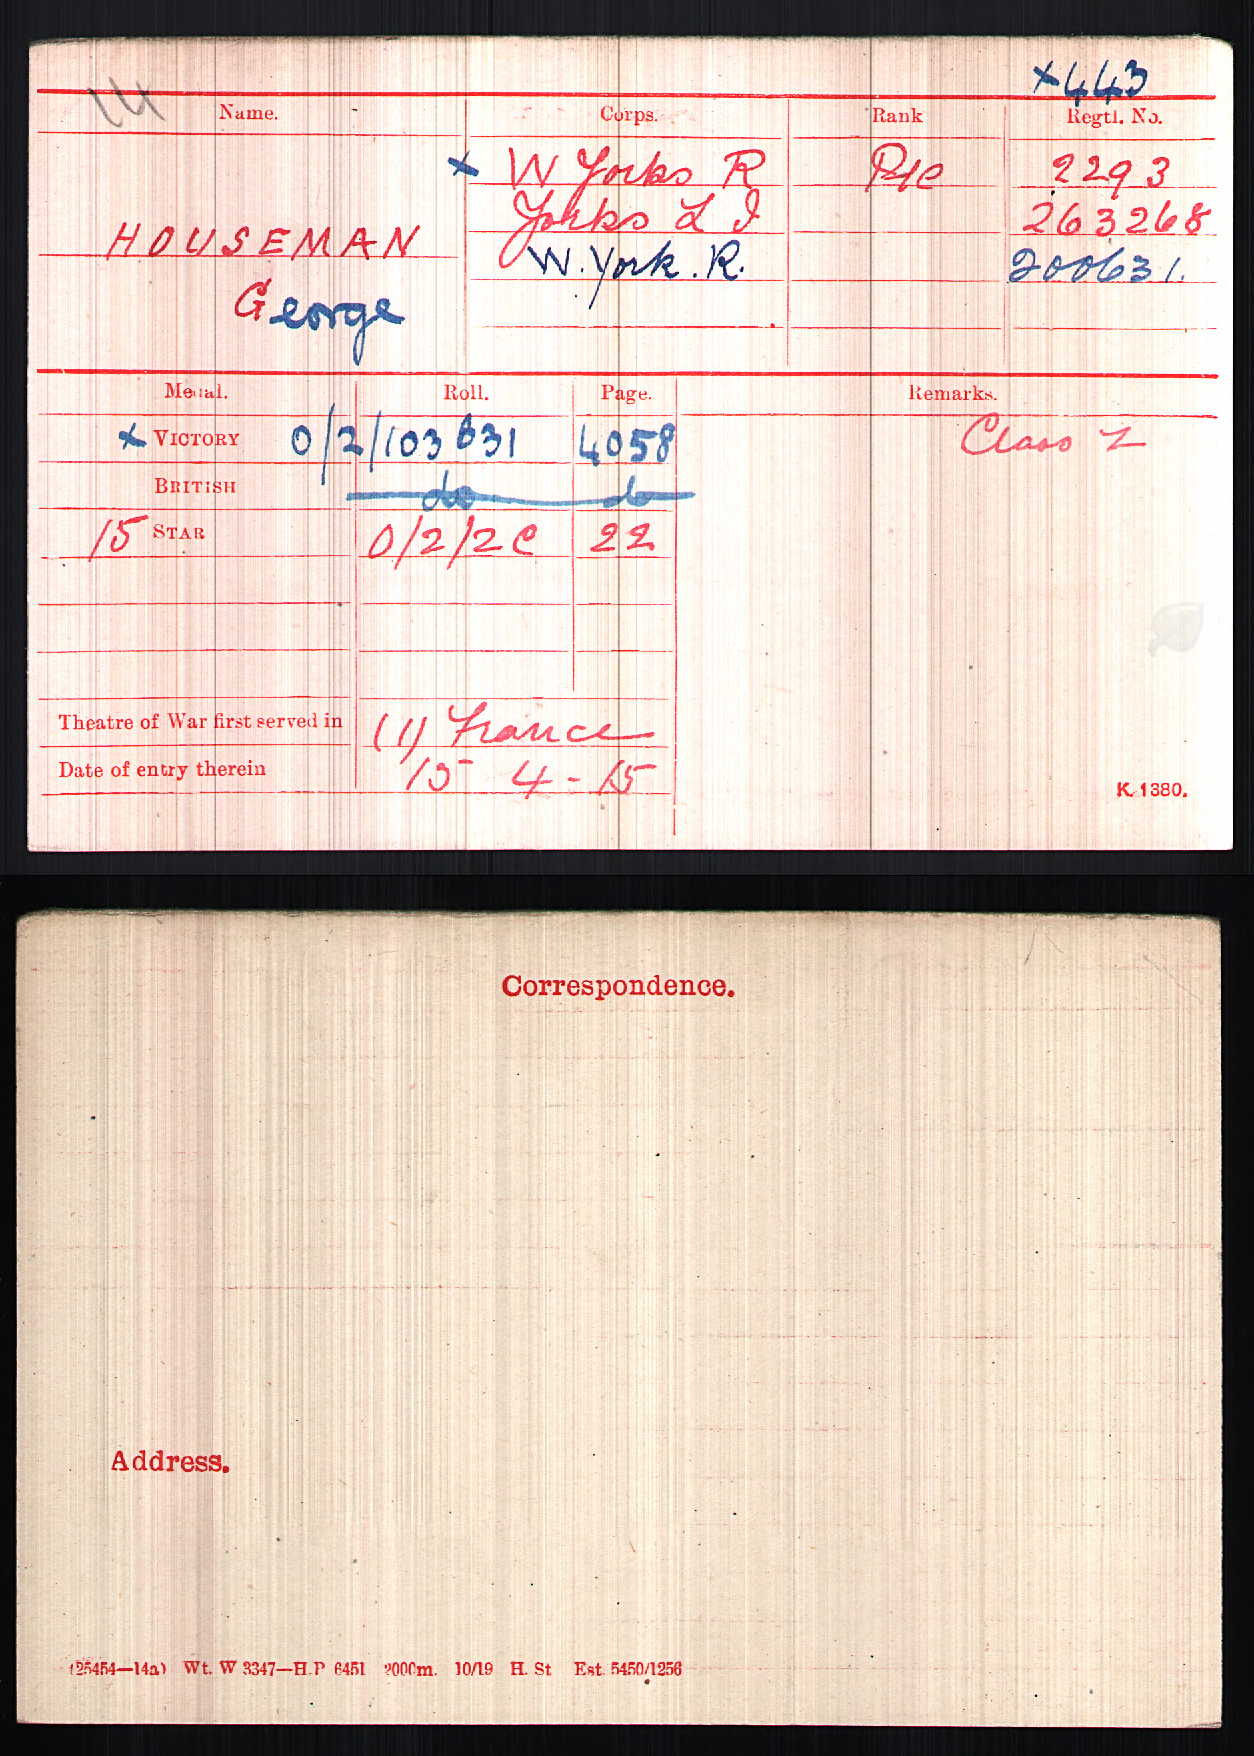 x 443
14
Name. Corps. Rank Regtl. No.
x W Yorks R Pte 2293
Yorks L I 263268
HOUSEMAN W. York. R. 200631.
George
Medal. Roll. Page. Remarks.
x VICTORY 0/2/103 B31 4058 Class Z
BRITISH do do
15 STAR 0/2/2 C 22
Theatre of War first served in (1) France
Date of entry therein 15 4-15
K. 1380.
Correspondence.
Address.
(25454—14a) Wt. W 3347—H.P 6451 2000m. 10/19 H. St Est. 5450/1256